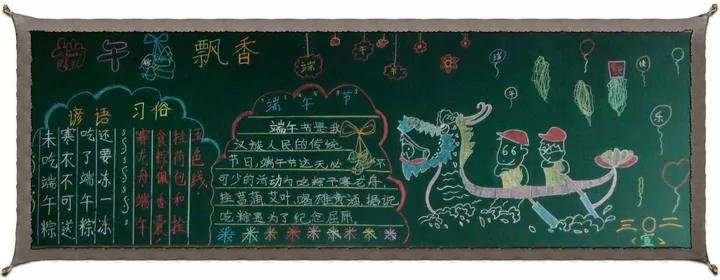 端午 飘香
谚语
未吃端午粽
寒衣不可送
吃了端午粽
还要冻一冻
习俗
赛龙舟端午
食粽佩香囊,
拴荷包和拴
五色线.
端
午
节
端午节
端午节是我
汉族人民的传统
节日,端午节这天必不
可少的活动为吃粽子赛龙舟,
挂菖蒲艾叶,喝雄黄酒,据说
吃粽是为了纪念屈原
端
午
快
乐
三〇二
(宣)